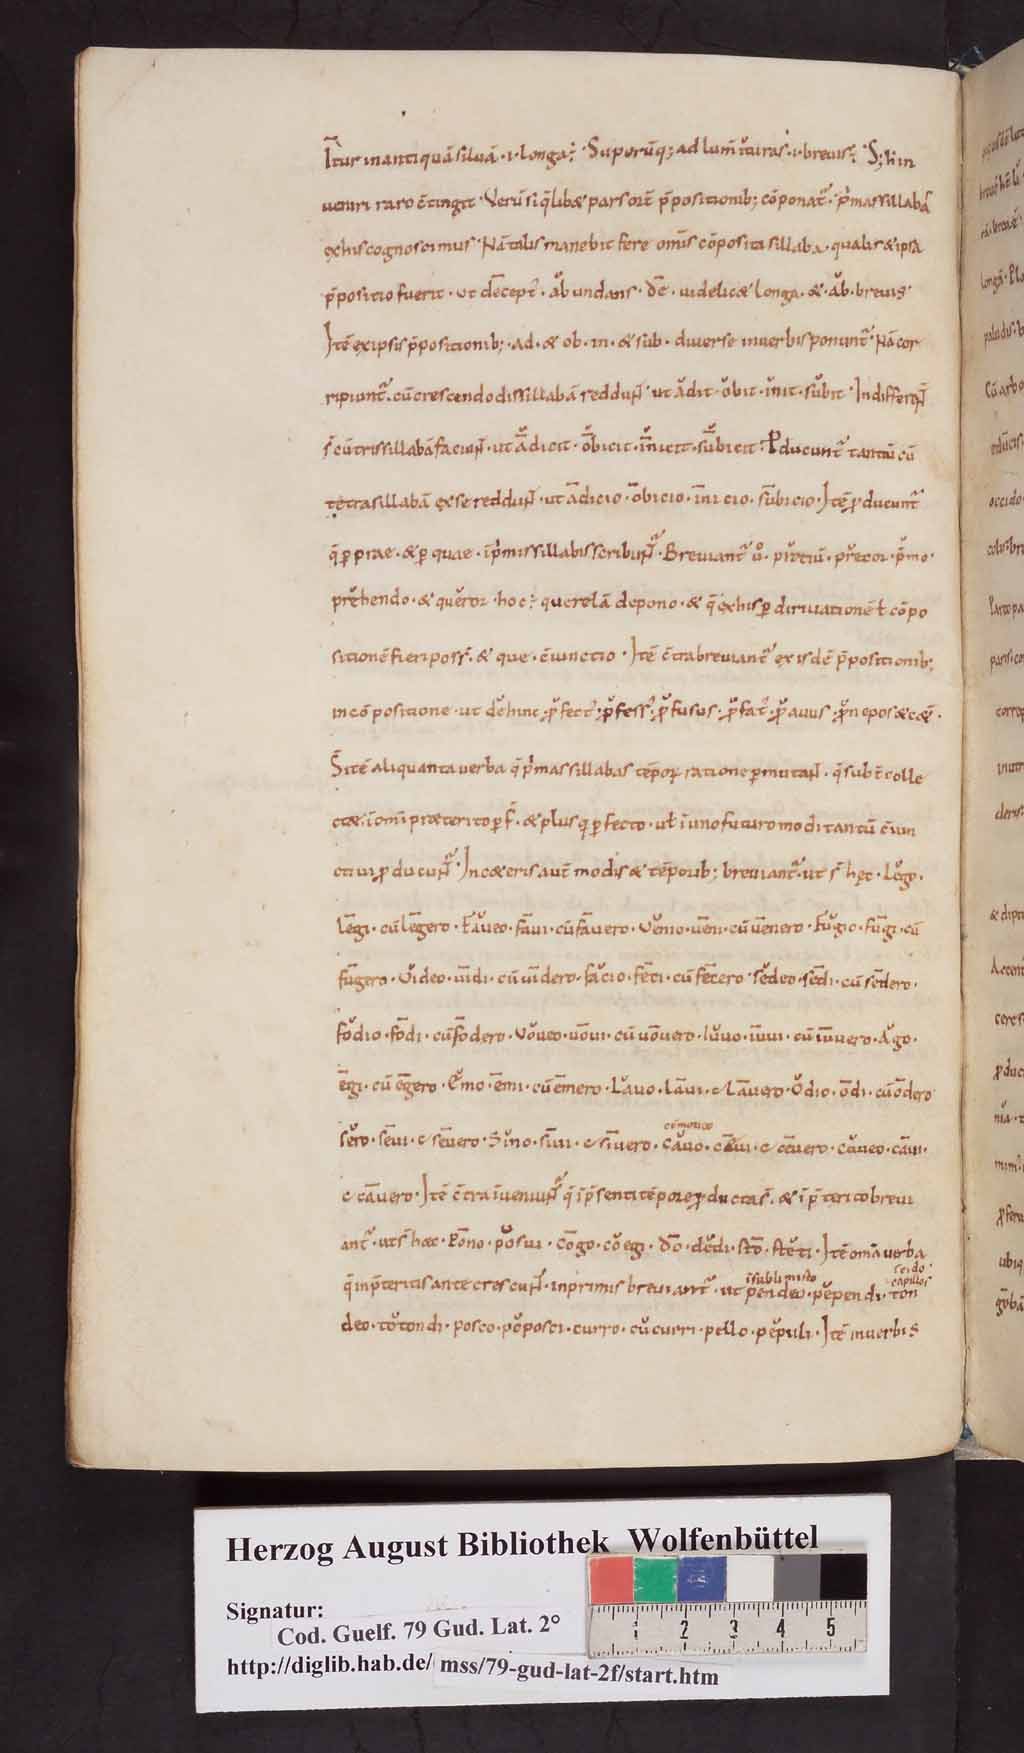 Ītur in antiquā siluā · i · longa ; Suporūq; ad lum̄ t̄turas · i · breuis ; S; h̄ in
ueniri raro c̄tingit · Verū si q̄libæ pars or̄t p̄positionib; cōponat̄ · p̄mā sillabā
ex his cognoscimus · Nā talis manebit fere om̄is cōposita sillaba · qualis & ipsa
p̄positio fuerit · ut dēcept̄ · ăbundans · dē · uidelicæ longa · & · ăb · breuis ·
Itē ex ipsis p̄positionib; · ad · & ob · in · & sub · diuerse in uerbis ponunt̄ · Nā cor
ripiunt̄ · cū crescendo dissillabā reddun̄ · ut ădit · ŏbit · ĭnit · sŭbit · Indifferen̄t
s̄ cū trissillabā faciun̄ · ut ādicit · ōbicit · īnicit · sūbicit · Pducunt̄ tantū cū
tetrasillabā ex se reddun̄ · ut ādicio · ōbicio · īnicio · sūbicio · Itē p̄ducunt̄
q̄ p prae · & p quae · ip̄mis sillabis scribun̄ · Breuiant̄ ů · prĕtiū · prĕcor · p̆mo ·
prĕhendo · & quĕror · hoc ; querelā depono · & q̄ ex his p diriuationē ł cōpo
sitionē fieri poss̄ · & que · c̄iunctio · Itē c̄tra breuiant̄ ex isdē p̄positionib;
in cōpositione · ut dĕhinc · p̆fect̄ · p̆fess̄ · p̆fusus · p̆fat̄ · p̆auus · p̆nepos & cǣ ·
S̄ itē aliquanta uerba q̄ p̄mas sillabas tēpor̄ ratione pmutan̄ · q̄ sub c̄ colle
ctæ · i om̄i præterito pf̄ · & plusq pfecto · uł i uno futuro modi tantū c̄iun
ctiui p̄ducun̄ · In cæteris aut̄ modis & tēporib; breuiant̄ · ut s̄ hęc · Lĕgo ·
lēgi · cū lēgero · Făueo · fāui · cū fāuero · Vĕnio · uēni · cū uēnero · Fŭgio · fūgi · cū
fūgero · Vĭdeo · uīdi · cū uīdero · făcio · fēci · cū fēcero · sĕdeo · sēdi · cū sēdero ·
fŏdio · fōdi · cū fōdero · Vŏueo · uōui · cū uōuero · Iŭuo · iūui · cū iūuero · Ăgo ·
ēgi · cū ēgero · Ĕmo · ēmi · cū ēmero · Lăuo · lāui · c lāuero · Ŏdio · ōdi · cū ōdero
sĕro · sēui · c sēuero · Sĭno · sīui · c sīuero · căuo · cāui · c cāuero · căueo · cāui ·
c cāuero · Itē c̄tra īueniun̄ q̄ i p̄senti tēpore p̄ducta s̄ · & i p̄terito breui
ant̄ · ut s̄ hæc · Pōno · pŏsui · Cōgo · cŏegi · dō · dĕdi · stō · stĕti · Itē om̄a uerba
q̄ in p̄teritis ante crescun̄ · in primis breuiant̄ · ut pendeo · pĕpendi · ton
deo · tŏtondi · posco · pŏposci · curro · cŭcurri · pello · pĕpuli · Itē in uerbis
Herzog August Bibliothek Wolfenbüttel
Signatur:
Cod. Guelf. 79 Gud. Lat. 2°
http://diglib.hab.de/ mss/79-gud-lat-2f/start.htm
1 2 3 4 5